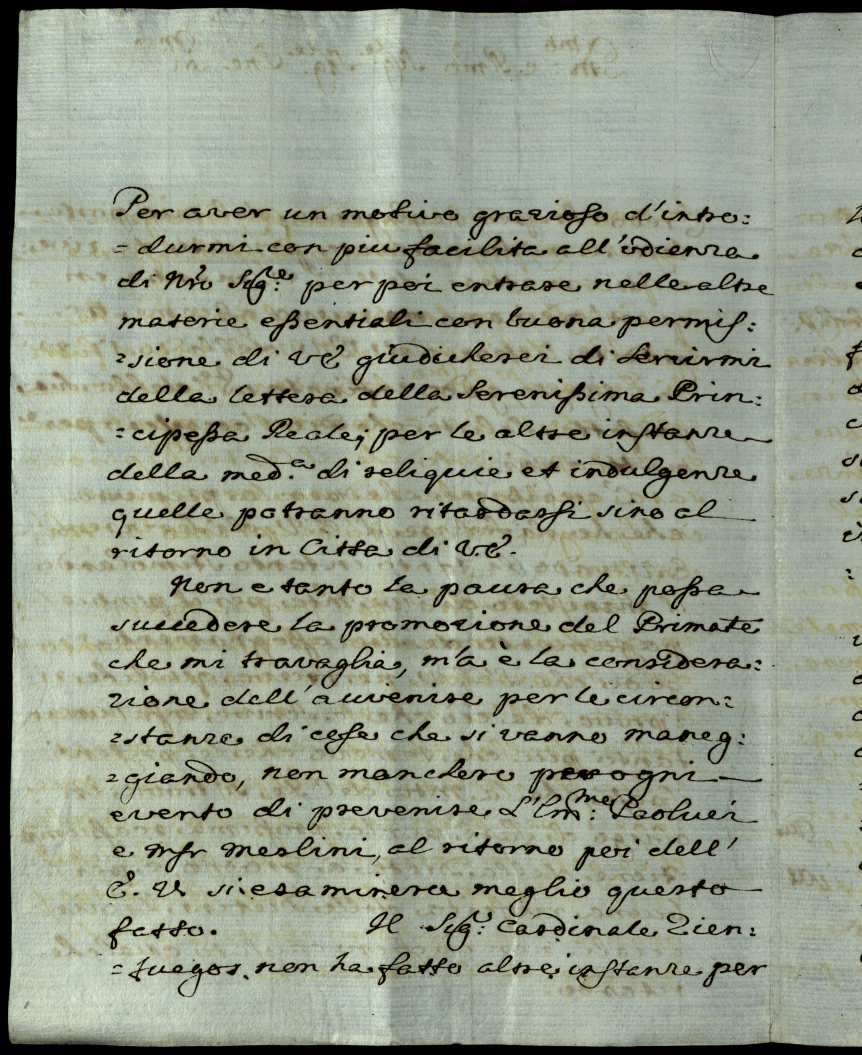 Per aver un motivo grazioso d'intro:
=durmi con piu facilita all'udienza
di Nro Sige: per poi entrare nelle altre
materie essentiali con buona permis:
=sione di VE giudicherei di servirmi
della lettera della Serenissima Prin:
=cipessa Reale; per le altre instanze
della med.a di reliquie et indulgenze
quelle potranno ritardarsi sino al
ritorno in Citta di VE.
Non e tanto la paura che possa
succedere la promozione del Primate
che mi travaglia, m'a è la considera:
zione dell'auvenire per le circon:
=stanze di cose che si vanno maneg:
=giando, non manchero per ogni
evento di prevenire L'Emme: Paolucci
e Msr Merlini, al ritorno poi dell'
E. V. si esaminera meglio questo
fatto. Il Sigr: Cardinale Zien:
=fuegos non ha fatto altre instanze per